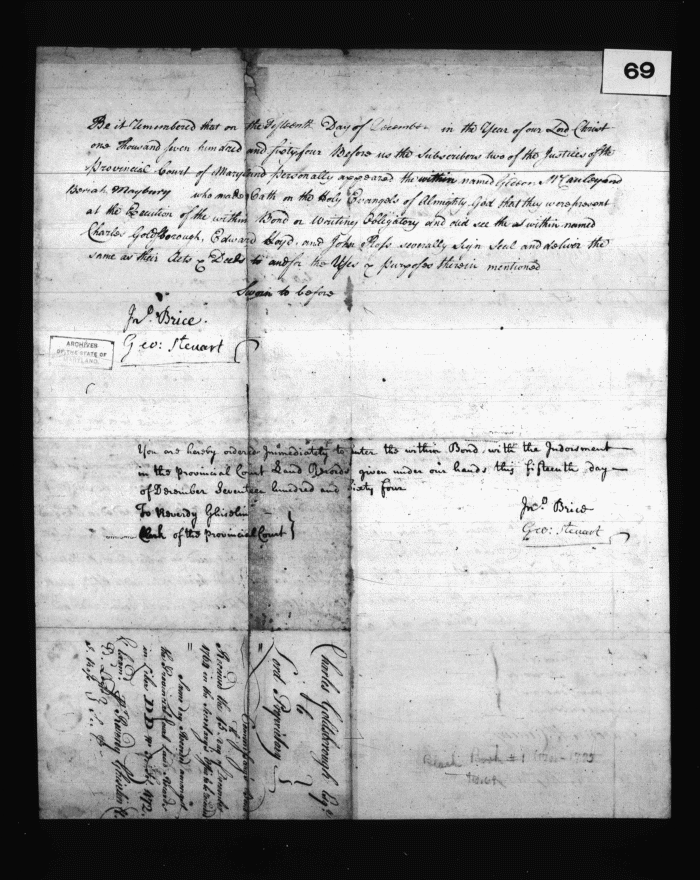 69
Be it remembered that on the fifteenth Day of December in the Year of our Lord Christ
one thousand seven hundred and sixty four Before us the Subscribers two of the Justices of the
Provincial Court of Maryland personally appeared the within named Gideon McCauley and
Beriah Maybury who made Oath on the Holy Evangels of Almighty God that they were present
at the Execution of the within Bond or Writing Obligatory and did see the within named
Charles Goldsborough, Edward Lloyd, and John Ross severally Sign Seal and deliver the
same as their Acts & Deeds to and for the Uses & purposes therein mentioned
Sworn to before
Jno. Brice.
Geo: Steuart
ARCHIVES
OF THE STATE OF
MARYLAND
You are hereby ordered Immediately to enter the within Bond with the Indorsment
in the Provincial Court Land Records given under our hands this fifteenth day
of December Seventeen hundred and Sixty four
To Reverdy Ghiselin
Clerk of the Provincial Court
Jno. Brice
Geo: Steuart
Charles Goldsborough Esqr.
to
Lord Proprietary
Commissary's Bond
Received the 15th day of December
1764
Same day Recorded
in the Provincial Court Land Records
in Liber DD No.
Reverdy Ghiselin
Black Book # 1